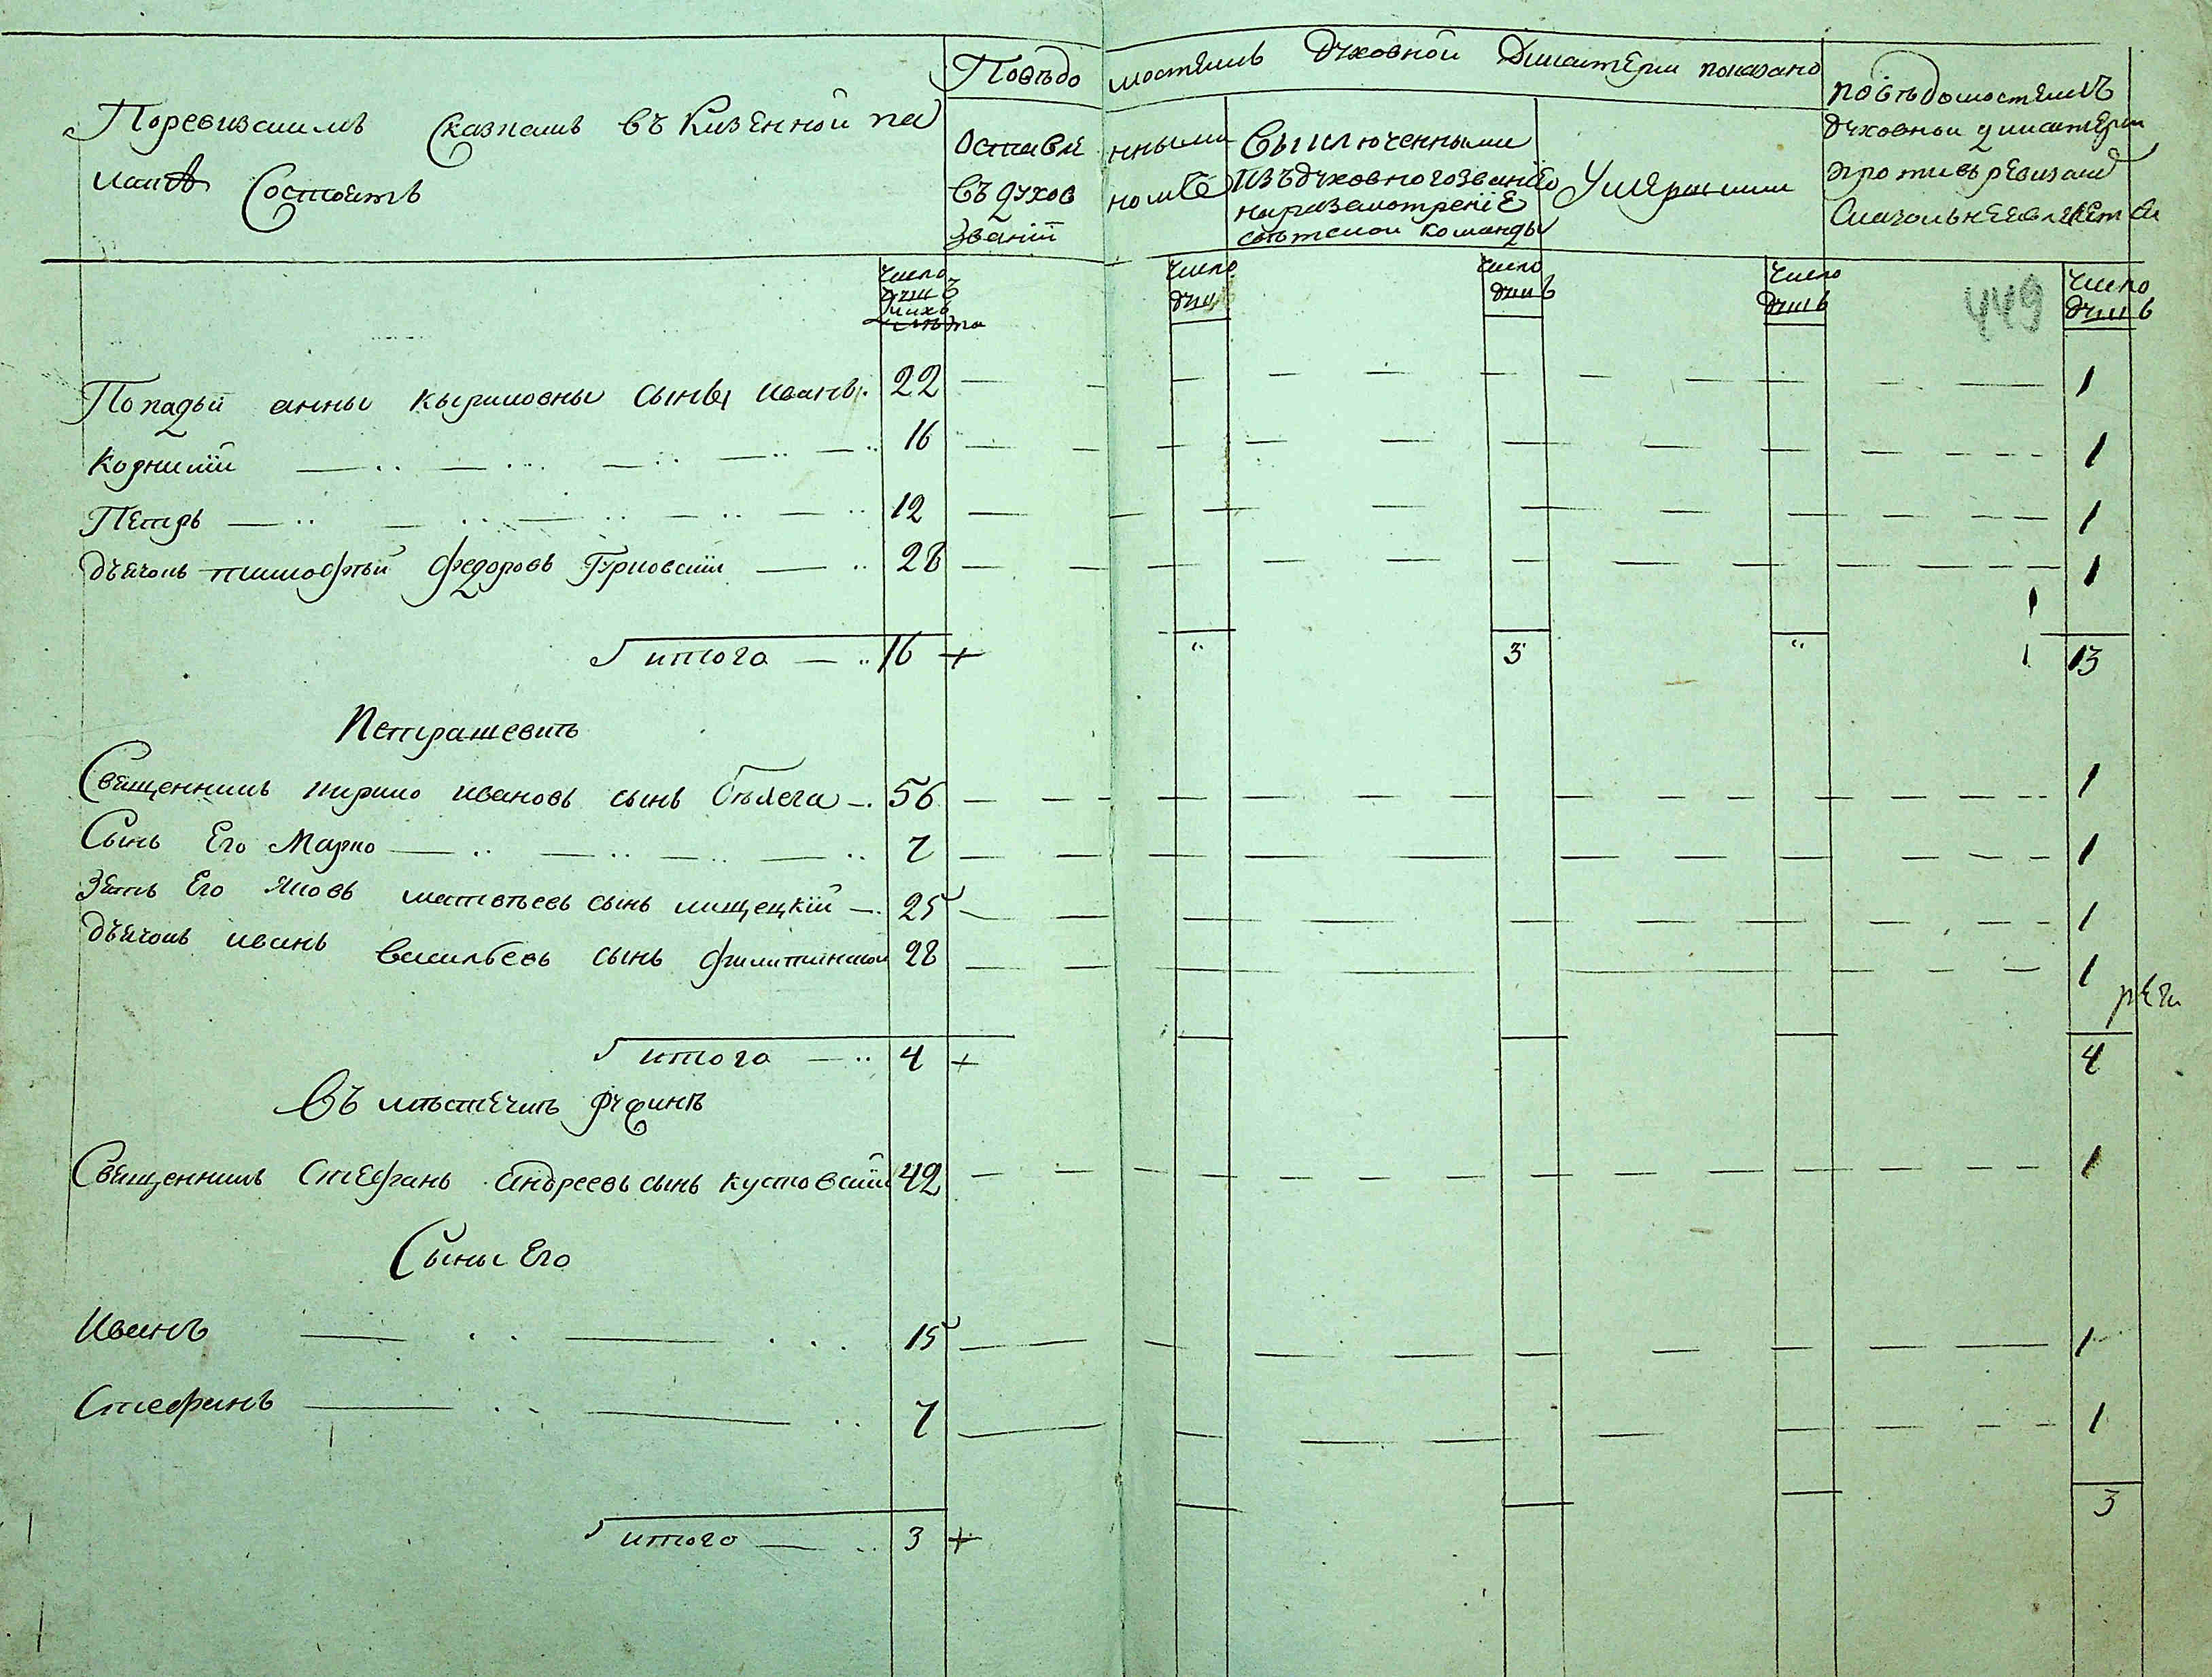 Поревизскимъ Сказкамъ въ Казенной па
латѣ Состоитъ
Повѣдо мостямъ духовной дикастерии показано
Оставле нными
въ духов номъ
званіи
Выключенными
изъ духовнаго званія
на разсмотреніе
свѣтской команды
Умершими
повѣдомостямъ
духовной дикастерии
противъ ревизскихъ
Сказокъ не является
число
душъ
число
душъ
число
душъ
число
душъ
число
душъ
449
Попадьи анны кыриловны сынъ иванъ 22 1
Корнилій 16 1
Петръ 12 1
дьячокъ тимофѣй федоровъ Гурковскій 28 1
итого 16 + 3 13
Петрашевкѣ
Священникъ кирило ивановъ сынъ Бѣлега 56 1
Сынъ Его Марко 7 1
Зять Его Яковъ матвѣевъ сынъ лищецкій 25 1
дьячокъ иванъ васильевъ сынъ 28 1
итого 4 + 4
Въ мѣстечкѣ
Священникъ Стефанъ андреевъ сынъ кустовскій 42 1
Сыны Его
Иванъ 15 1
Стефанъ 7 1
итого 3 + 3